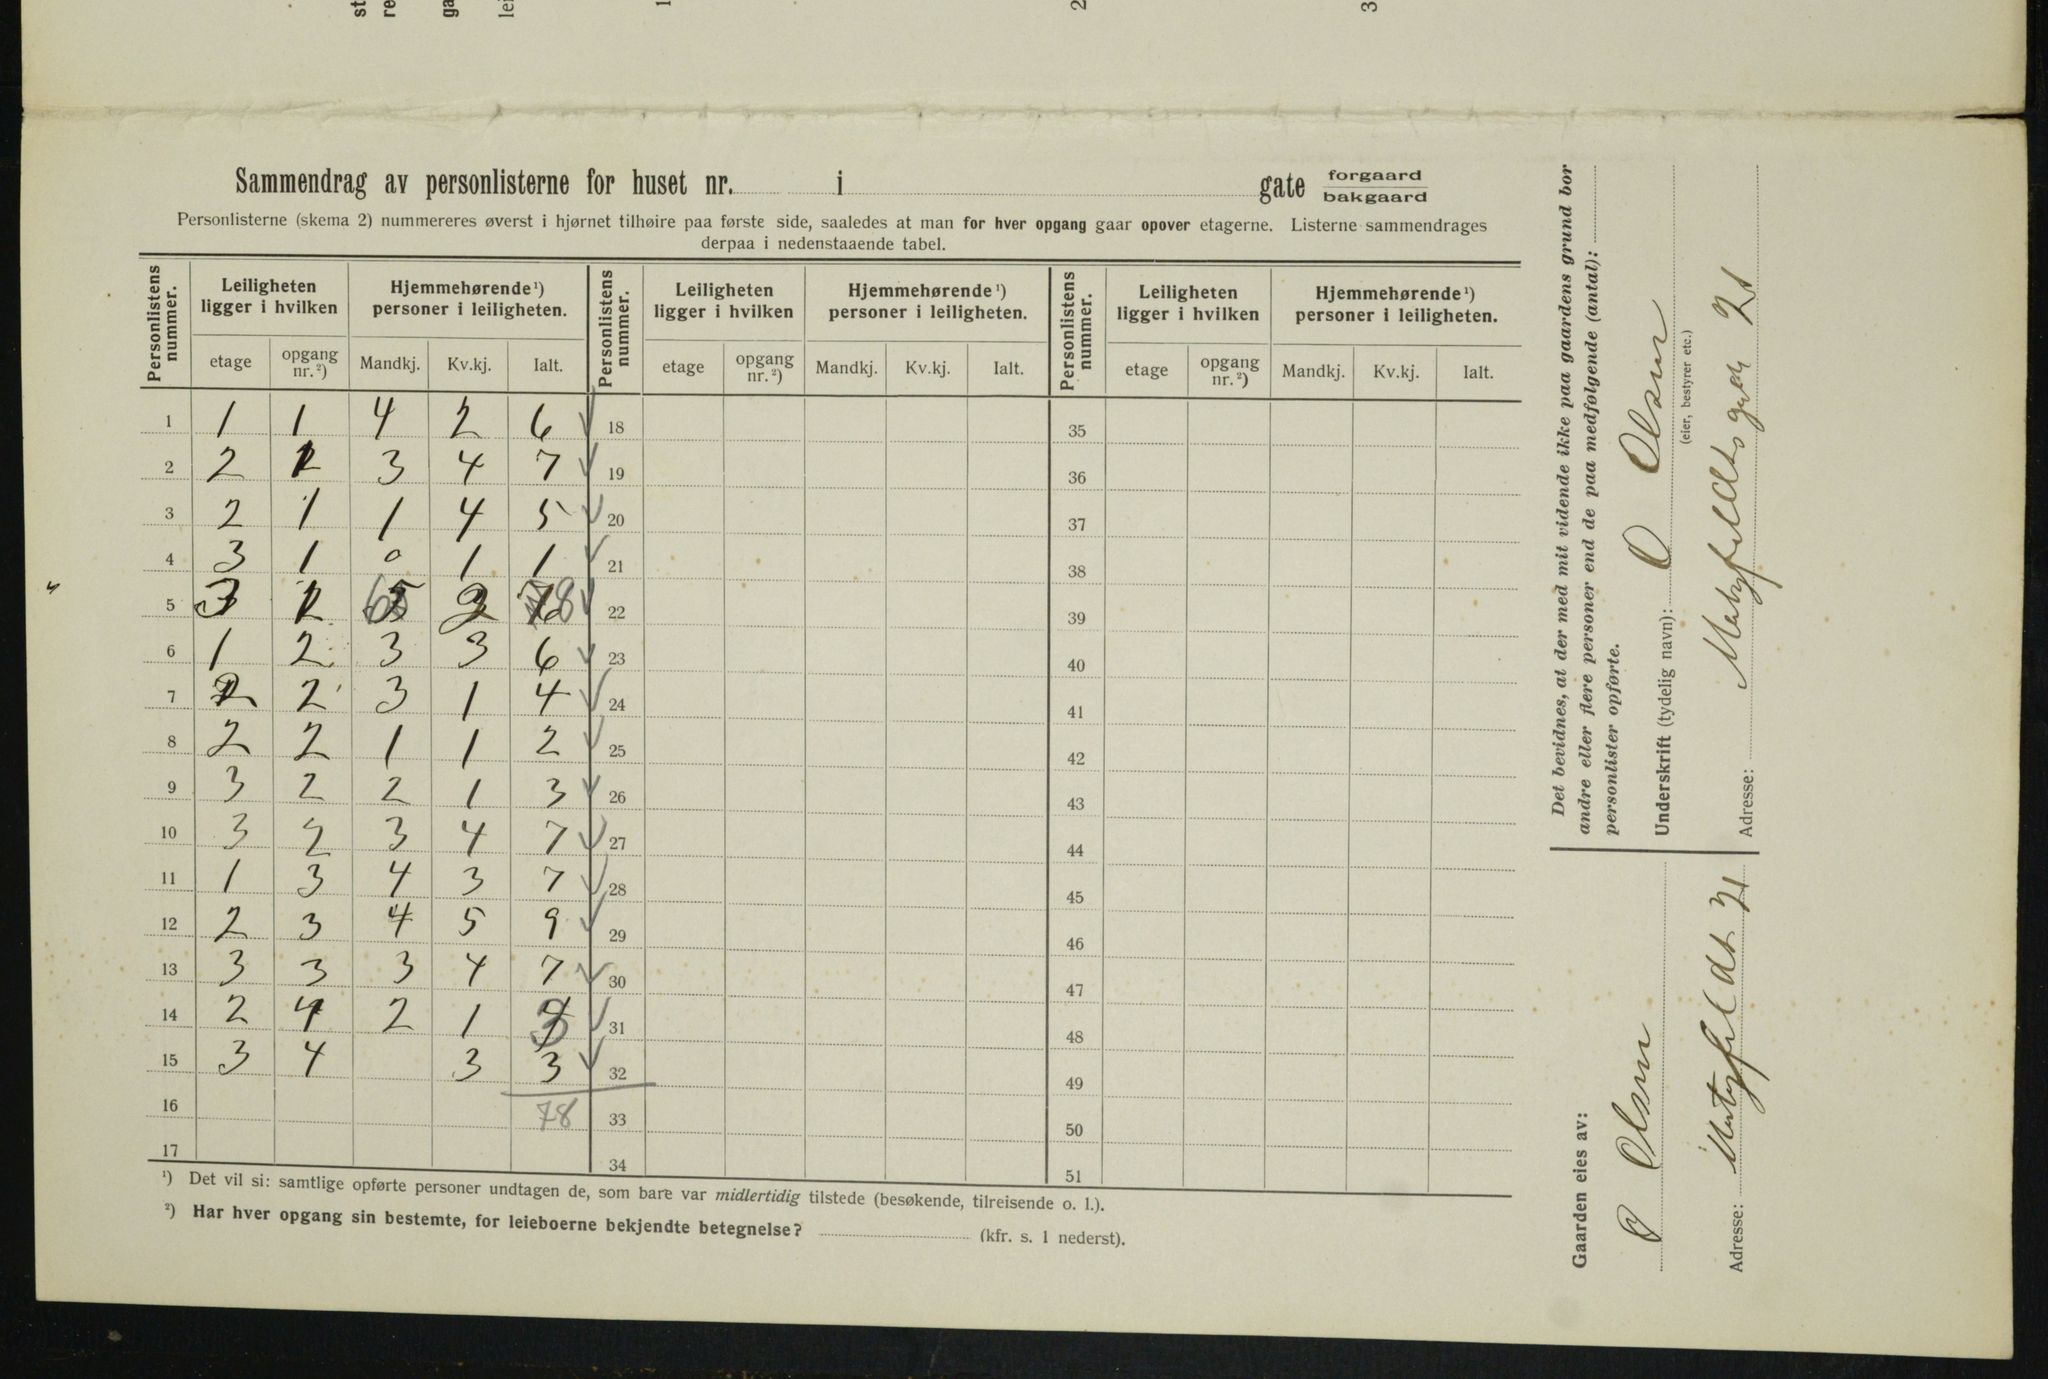 Sammendrag av personlisterne for huset nr. i gate forgaard
bakgaard
Personlisterne (skema 2) nummereres øverst i hjørnet tilhøire paa første side, saaledes at man for hver opgang gaar opover etagerne. Listerne sammendrages
derpaa i nedenstaaende tabel.
Personlistens nummer. Leiligheten ligger i hvilken Hjemmehørende ¹) personer i leiligheten. Personlistens nummer. Leiligheten ligger i hvilken Hjemmehørende ¹) personer i leiligheten. Personlistens nummer. Leiligheten ligger i hvilken Hjemmehørende ¹) personer i leiligheten.
etage opgang nr. ²) Mandkj. Kv.kj. Ialt. etage opgang nr. ²) Mandkj. Kv.kj. Ialt. etage opgang nr. ²) Mandkj. Kv.kj. Ialt.
1 1 1 4 2 6 18 35
2 2 1 3 4 7 19 36
3 2 1 1 4 5 20 37
4 3 1 0 1 1 21 38
5 3 1 6 2 8 22 39
6 1 2 3 3 6 23 40
7 2 2 3 1 4 24 41
8 2 2 1 1 2 25 42
9 3 2 2 1 3 26 43
10 3 2 3 4 7 27 44
11 1 3 4 3 7 28 45
12 2 3 4 5 9 29 46
13 3 3 3 4 7 30 47
14 2 4 2 1 3 31 48
15 3 4 3 3 32 49
16 78 33 50
17 34 51
¹) Det vil si: samtlige opførte personer undtagen de, som bare var midlertidig tilstede (besøkende, tilreisende o. l.).
²) Har hver opgang sin bestemte, for leieboerne bekjendte betegnelse? (kfr. s. 1 nederst).
Det bevidnes, at der med mit vidende ikke paa gaardens grund bor
andre eller flere personer end de paa medfølgende (antal):
personlister opførte.
Underskrift (tydelig navn): O Olsen
(eier, bestyrer etc.)
Adresse: 21
Gaarden eies av:
O Olsen
Adresse: 21